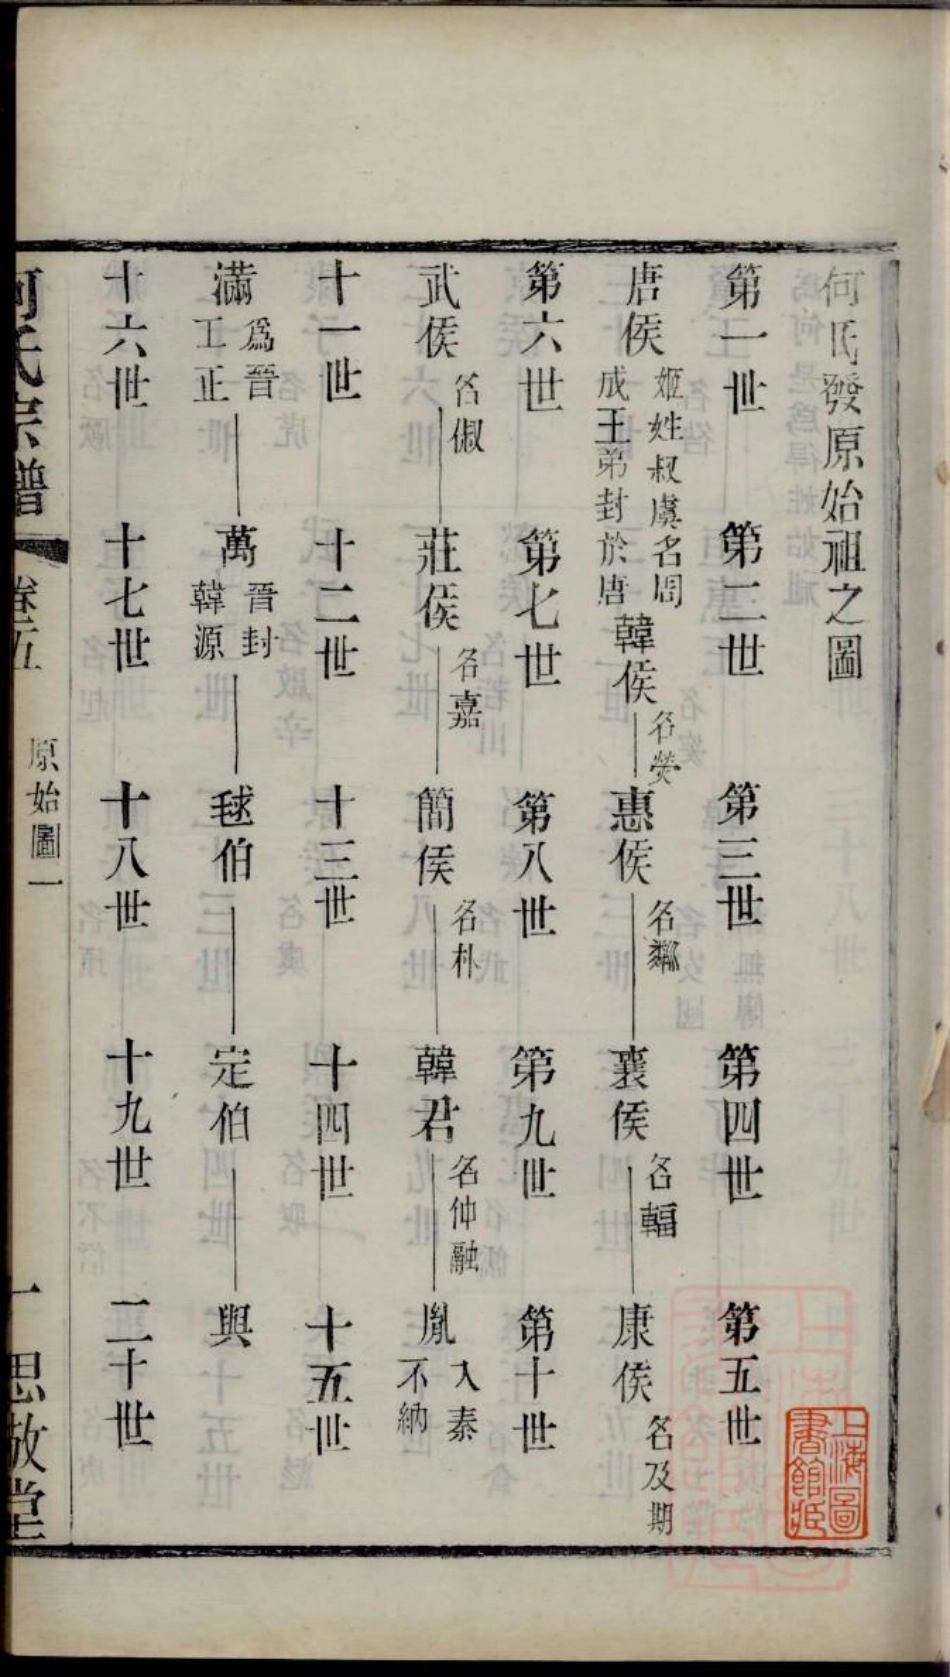 何氏發原始祖之圖
第一世 第二世 第三世 第四世 第五世
唐侯 姬姓叔虞名周成王弟封於唐 韓侯 名熒 惠侯 名鄰 襄侯 名輻 康侯 名及期
第六世 第七世 第八世 第九世 第十世
武侯 名俶 莊侯 名嘉 簡侯 名朴 韓君 名仲融 胤 入秦不納
十一世 十二世 十三世 十四世 十五世
滿 爲晉工正 萬 晉封韓源 毬伯 定伯 與
十六世 十七世 十八世 十九世 二十世
何氏宗譜 卷五 原始圖一 一 思敬堂
上海圖書館藏